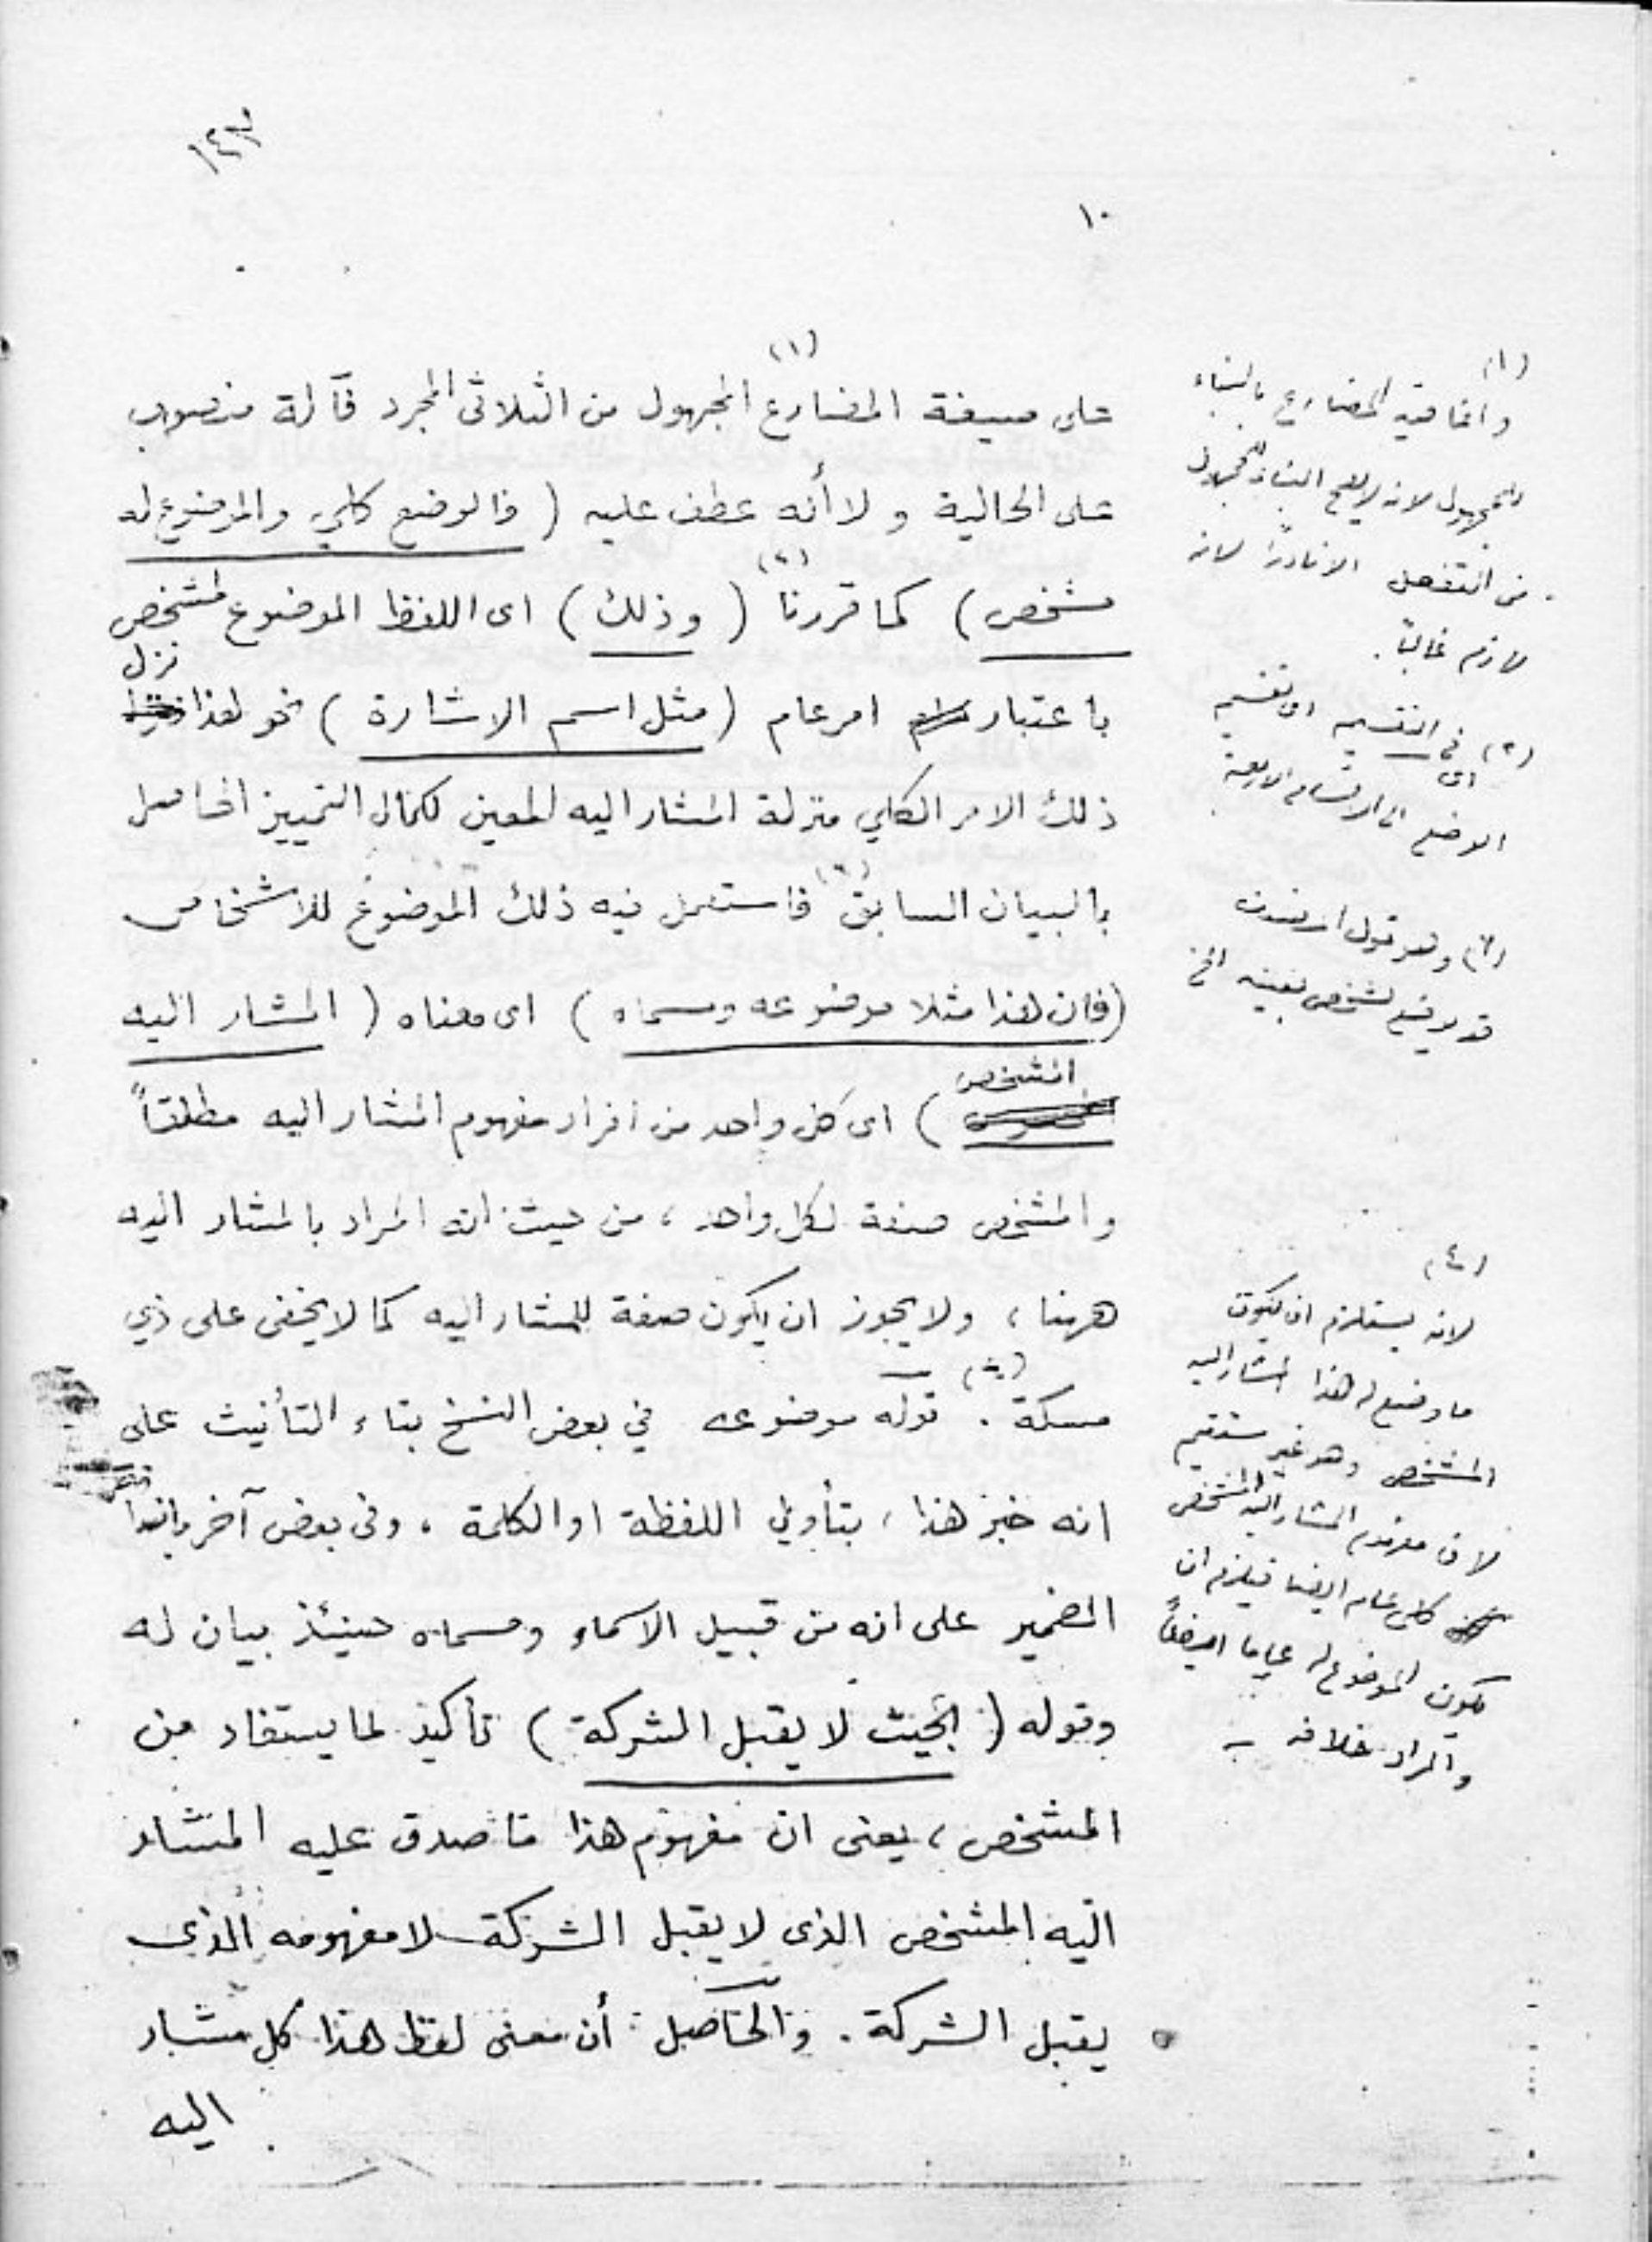 ١٤٣
١٠
(١)
على صيغة المضارع المجهول من الثلاثى المجرد فآلة منصوب
على الحالية ولا أنه عطف عليه ( فالوضع كلي والموضوع له
(٢)
مشخص ) كما قررنا ( وذلك ) اى اللفظ الموضوع لمشخص
نزل
باعتبار امر عام ( مثل اسم الاشارة ) نحو هذا
ذلك الامر الكلي منزلة المشار اليه المعين لكمال التمييز الحاصل
(٣)
بالبيان السابق فاستعمل فيه ذلك الموضوع للاشخاص
(فان هذا مثلا موضوعه ومسماه ) اى معناه ( المشار اليه
المشخص
) اى كل واحد من افراد مفهوم المشار اليه مطلقاً
والمشخص صفة لكل واحد ، من حيث انه المراد بالمشار اليه
ههنا ، ولا يجوز ان يكون صفة للمشار اليه كما لا يخفى على ذي
(٤)
مسكة . قوله موضوعه في بعض النسخ بتاء التأنيث على
انه خبر هذا ، بتأويل اللفظة او الكلمة ، وفى بعض آخر
الضمير على انه من قبيل الاسماء ومسماه حينئذ بيان له
وقوله ( بحيث لا يقبل الشركة ) تأكيد لما يستفاد من
المشخص ، يعنى ان مفهوم هذا ما صدق عليه المشار
اليه المشخص الذى لا يقبل الشركة لا مفهومه الذى
يقبل الشركة . والحاصل أن معنى لفظ هذا كل مشار
اليه
(١)
وانما قيد المضارع بالبناء
للمجهول لانه لا يصح البناء للمجهول
من التفعل الا نادراً لانه
لازم غالباً .
(٢) فى التقسيم اى تقسيم
اى
الوضع الى الاقسام الاربعة
(٣) وهو قول
قد يوضع لشخص بعينه الخ
(٤)
لانه يستلزم ان يكون
ما وضع له هذا المشار اليه
المشخص وهو غير مستقيم
لان مفهوم المشار اليه المشخص
كلى عام ايضا فيلزم ان
يكون الموضوع له عاما ايضاً
والمراد خلافه